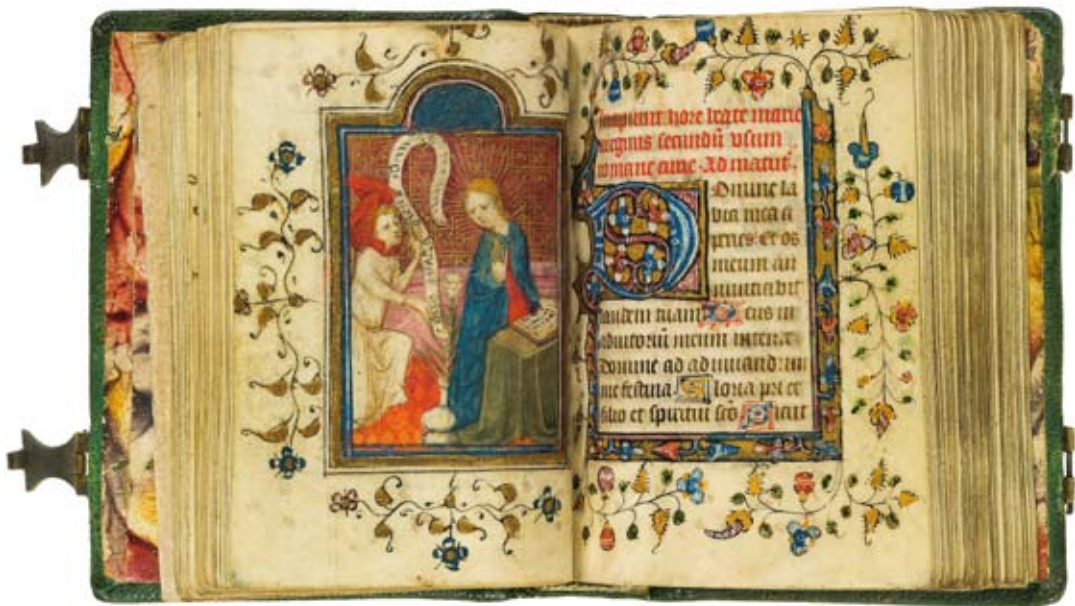 Incipiunt hore beate marie
virginis secundū vsum
romane curie Ad matut᷑
Domine la
bia mea a
peries Et os
meum an
nuntiabit
laudem tuam Deus in
adiutoriū meum intende
domine ad adiuuandum
me festina Gloria pri et
filio et spiritui scō Sicut